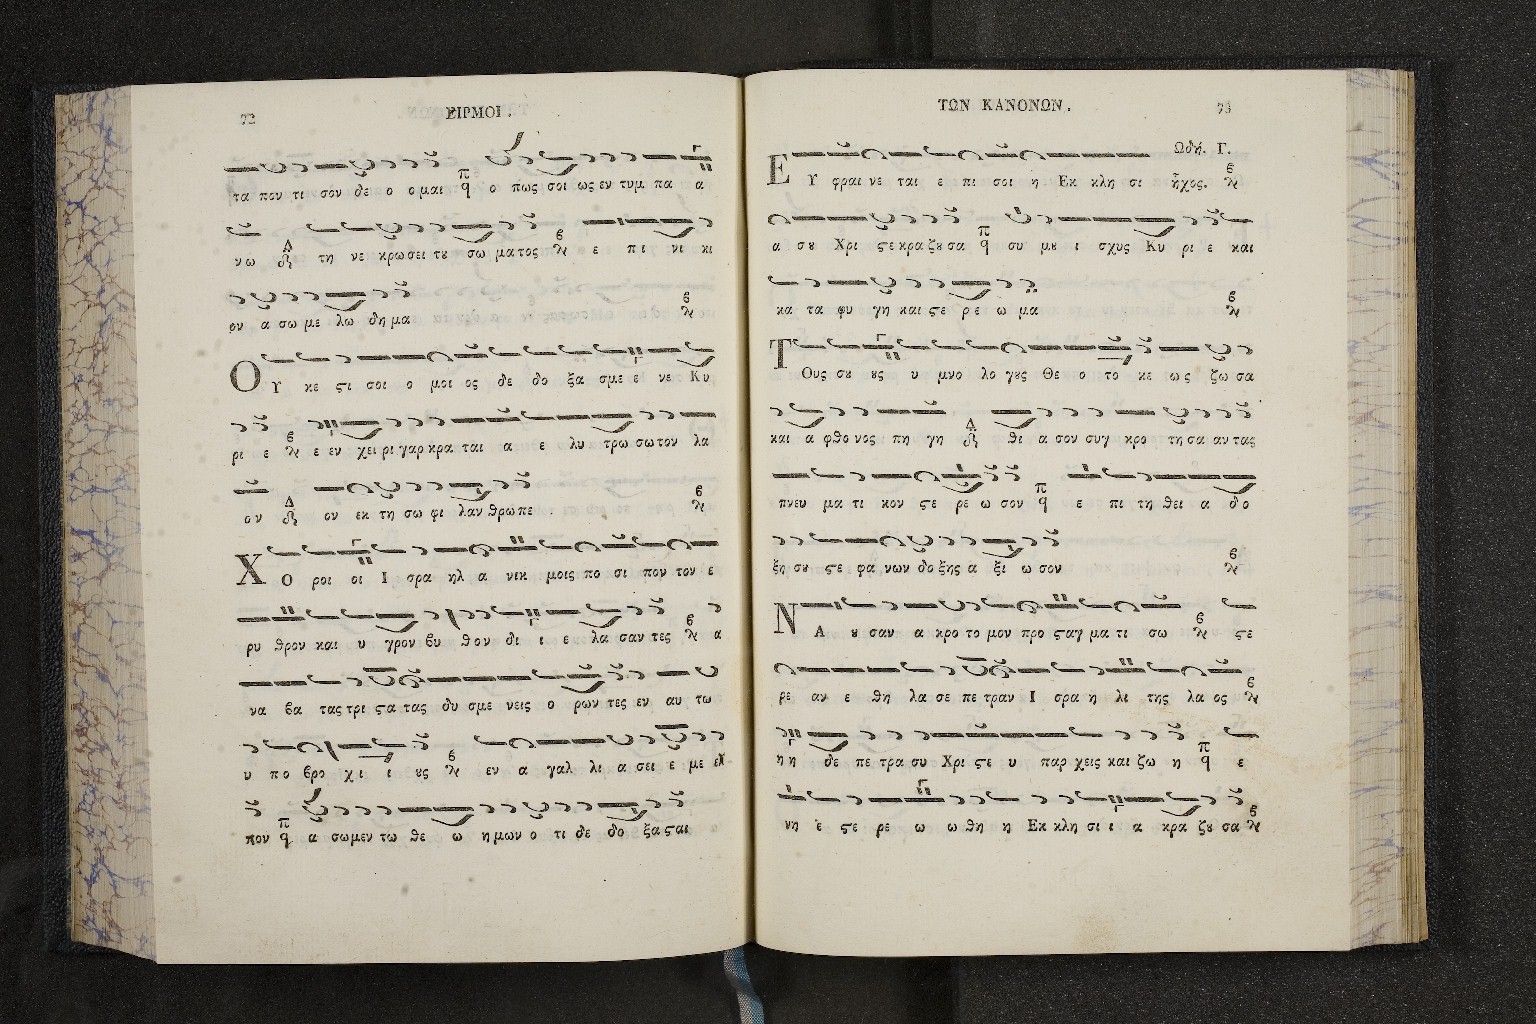 72
ΕΙΡΜΟΙ.
τα πον τι σον δε ο ομαι π ο πως σοι ως εν τυμ πα α
νω Δ τη νε κρωσει του σω ματος β ε πι νι κι
ον α σω με λω δημα β
ΟΥ κε ϛι σοι ο μοι ος δε δο ξα σμε ε νε Κυ
ρι ε β ε εν χει ρι γαρ κρα ται α ε λυ τρω σω τον λα
ον Δ ον εκ τη σω φι λαν θρωπε β
ΧΟ ροι οι Ι σρα ηλ α νικ μοις πο σι πον τον ε
ρυ θρον και υ γρον βυ θον δι ι ε λα σαν τες β α
να βα τας τρι ϛα τας δυ σμε νεις ο ρων τες εν αυ τω
υ πο βρο χι ι ȣς β εν α γαλ λι α σει ε με ελ
πον π α σωμεν τω θε ω ημων ο τι δε δο ξαϛαι
ΤΩΝ ΚΑΝΟΝΩΝ.
73
Ωδή. Γ.
ΕΥ φραι νε ται ε πι σοι η Εκ κλη σι ἦχος. β
α σȣ Χρι ϛε κρα ζȣσα π συ μȣ ι σχυς Κυ ρι ε και
κα τα φυ γη και ϛε ρε ω μα β
Τȣς σȣ ȣς υ μνο λο γȣς Θε ο το κε ως ζω σα
και α φθο νος πη γη Δ θι α σον συγ κρο τη σα αν τας
πνευ μα τι κον ϛε ρε ω σον π ε πι τη θει α δο
ξη σȣ ϛε φα νων δοξης α ξι ω σον β
ΝΑ ȣ σαν α κρο το μον προ ϛαγ μα τι σω β ϛε
ρε αν ε θη λα σε πε τραν Ι σρα η λι της λα ος β
η η δε πε τρα συ Χρι ϛε υ παρ χεις και ζω η π ε
νη ε ϛε ρε ω ω θη η Εκ κλη σι ι α κρα ζȣ σα β